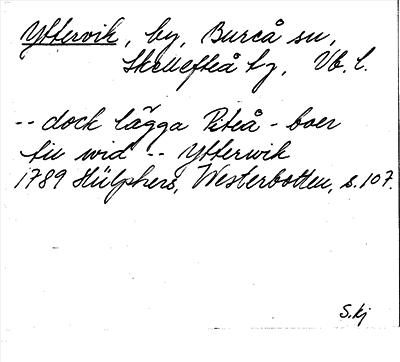 Yttervik, by, Bureå sn,
Skellefteå tg, Vb. l.
-- dock lägga Piteå-boer
till wid -- Ytterwik
1789 Hülphers, Westerbotten, s. 107.
S. Kj